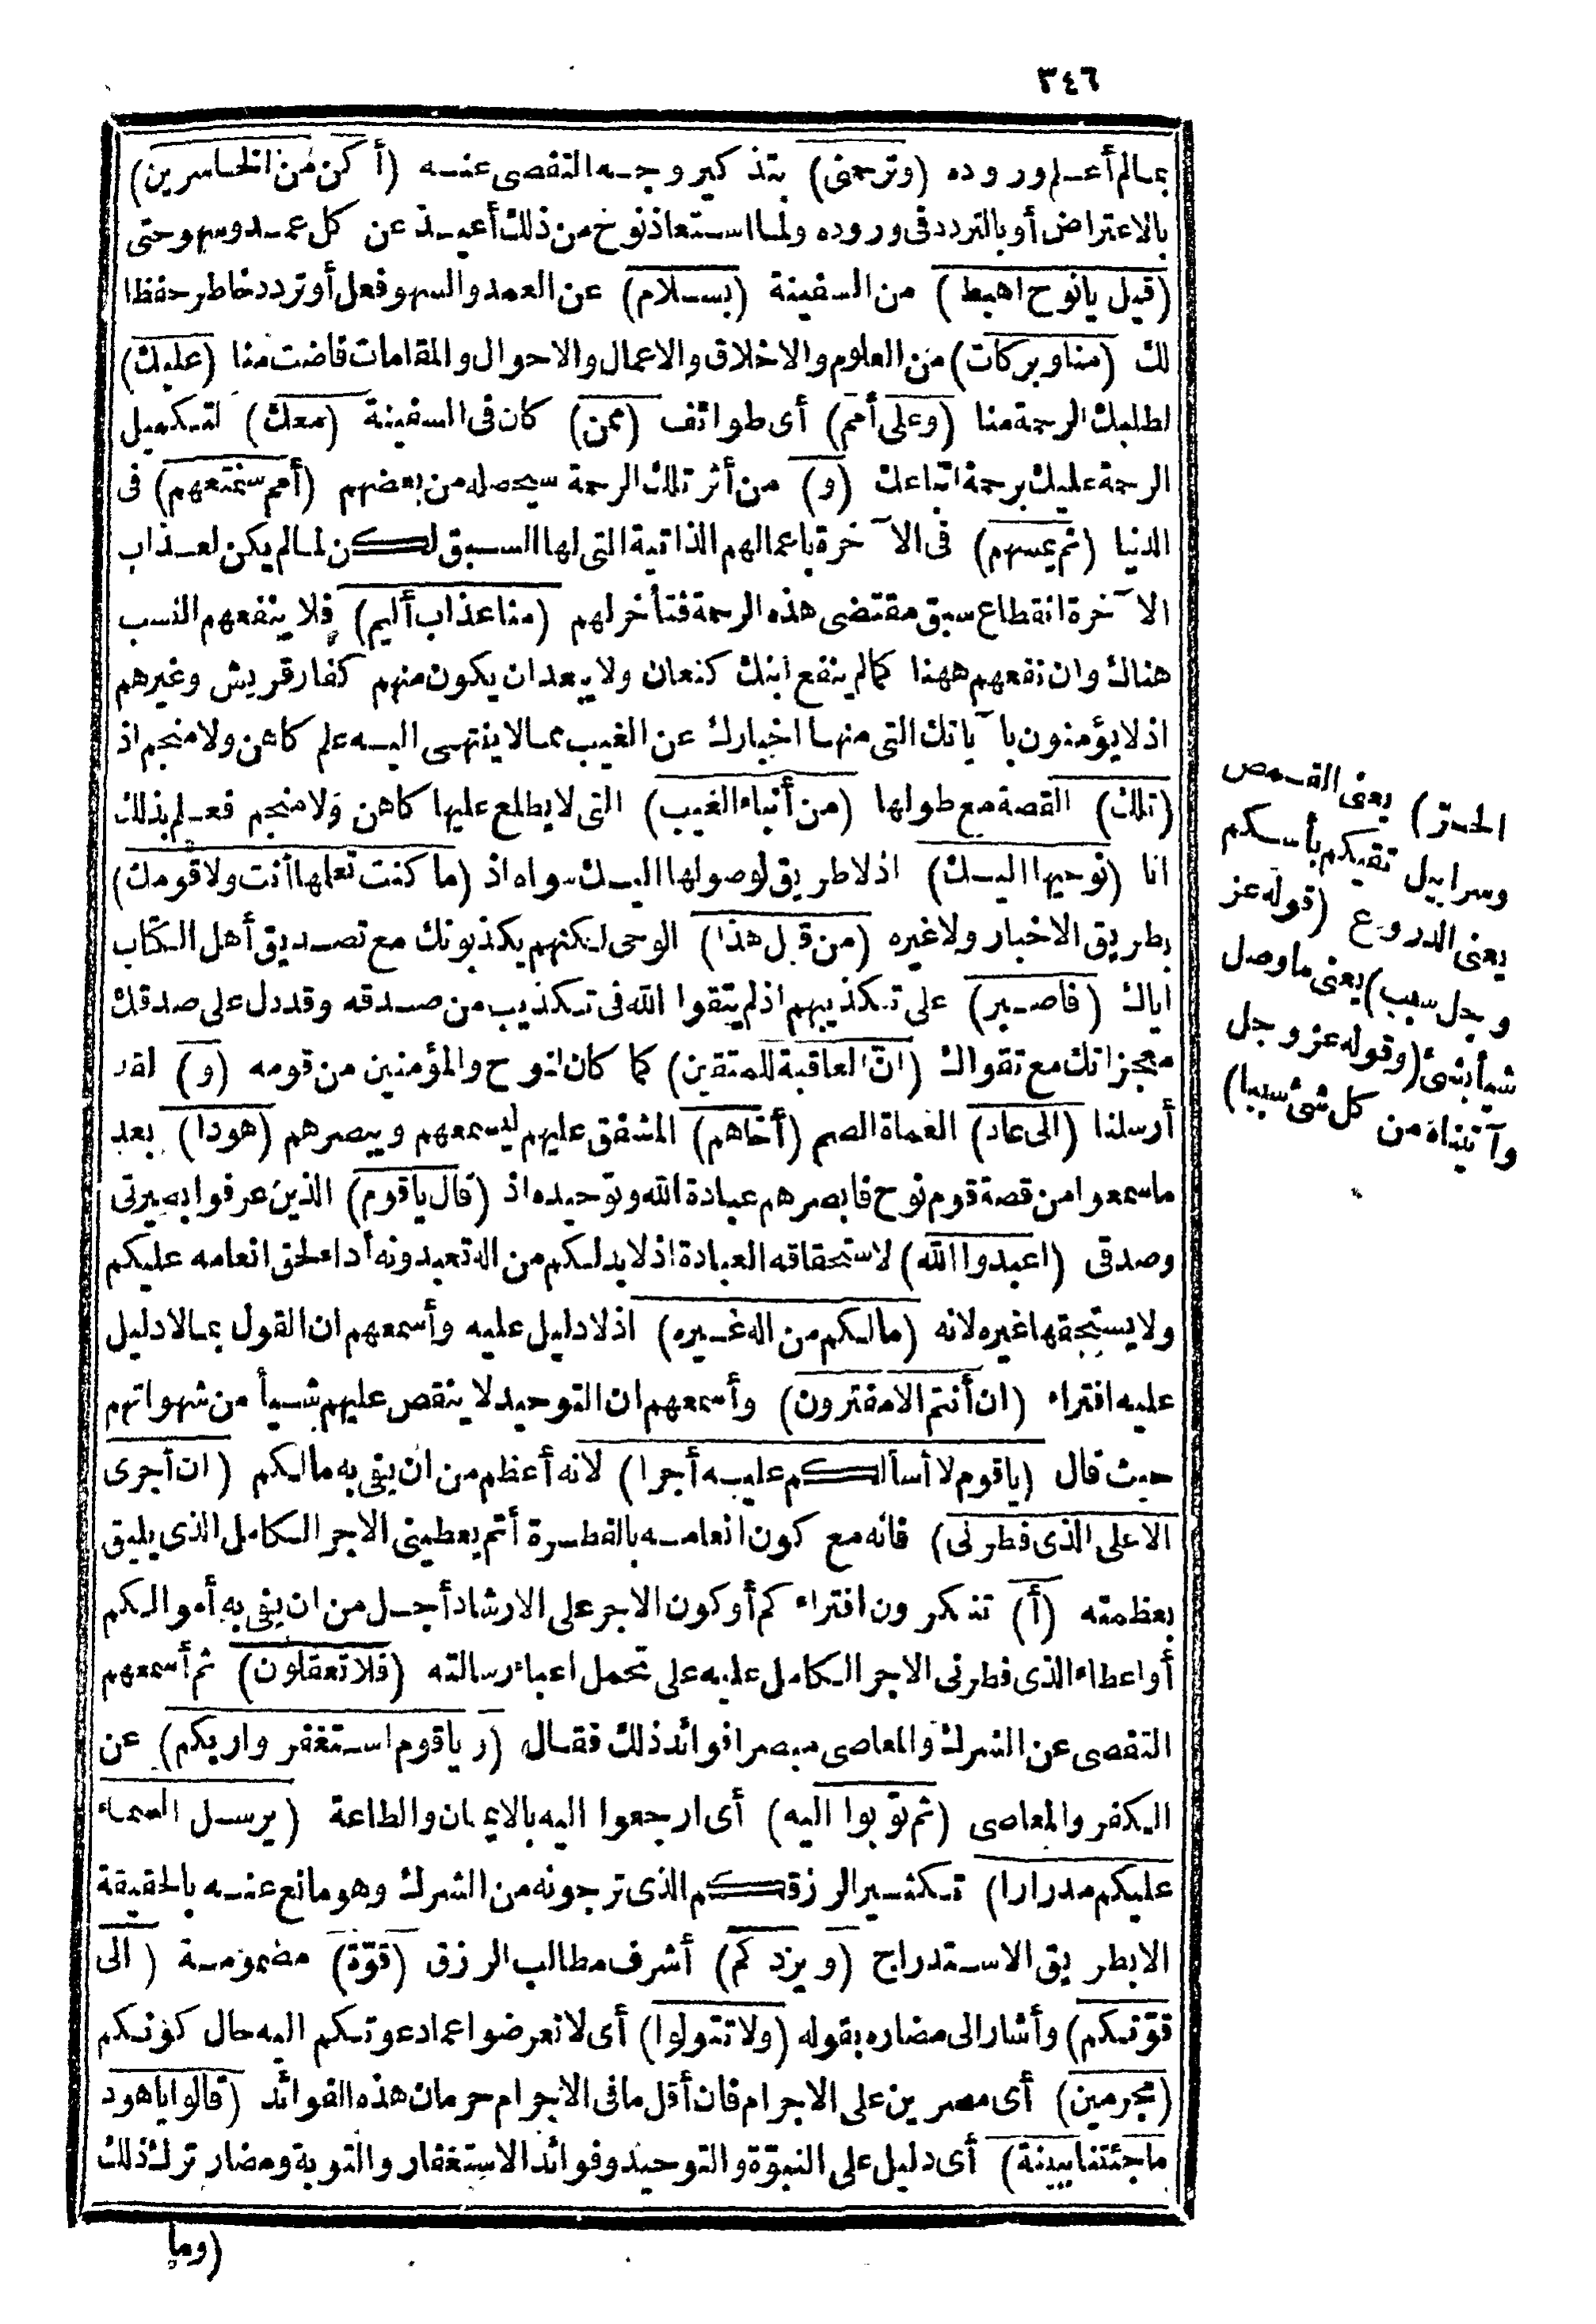 ٣٤٦
بمالم أعلم وروده (وترحمنى) بتذكير وجه التفصى عنه (أكن من الخاسرين)
بالاعتراض أو بالتردد فى وروده ولما استعاذ نوح من ذلك أعيذ عن كل عمد وسهو حتى
(قيل يانوح اهبط) من السفينة (بسلام) عن العمد والسهو فعل أو تردد خاطر حفظا
لك (منا وبركات) من العلوم والاخلاق والاعمال والاحوال والمقامات فاضت منا (عليك)
لطلبك الرحمة منا (وعلى أمم) أى طوائف (ممن) كان فى السفينة (معك) لتكميل
الرحمة عليك برحمة اتباعك (و) من أثر تلك الرحمة سيحصله من بعضهم (أمم سنمتعهم) فى
الدنيا (ثم يمسهم) فى الآخرة باعمالهم الذاتية التى لها السبق لكن لمالم يكن لعذاب
الآخرة انقطاع سبق مقتضى هذه الرحمة فتأخر لهم (منا عذاب أليم) فلا ينفعهم النسب
هناك وان نفعهم ههنا كمالم ينفع ابنك كنعان ولا يبعد ان يكون منهم كفار قريش وغيرهم
اذ لا يؤمنون بآياتك التى منها اخبارك عن الغيب بما لا ينتهى اليه علم كاهن ولا منجم اذ
(تلك) القصة مع طولها (من أنباء الغيب) التى لا يطلع عليها كاهن ولا منجم فعلم بذلك
انا (نوحيها اليك) اذ لا طريق لوصولها اليك سواه اذ (ما كنت تعلمها أنت ولا قومك)
بطريق الاخبار ولا غيره (من قبل هذا) الوحى لكنهم يكذبونك مع تصديق أهل الكتاب
اياك (فاصبر) على تكذيبهم اذ لم يتقوا الله فى تكذيب من صدقه وقد دل على صدقك
معجزاتك مع تقواك (ان العاقبة للمتقين) كما كان لنوح والمؤمنين من قومه (و) لقد
أرسلنا (الى عاد) العماة الصم (أخاهم) المشفق عليهم ليسمعهم ويبصرهم (هودا) بعد
ماسمعوا من قصة قوم نوح فابصرهم عبادة الله وتوحيده اذ (قال ياقوم) الذين عرفوا بصيرتى
وصدقى (اعبدوا الله) لاستحقاقه العبادة اذ لا بد لكم من اله تعبدونه أداء لحق انعامه عليكم
ولا يستحقها غيره لانه (مالكم من اله غيره) اذ لا دليل عليه وأسمعهم ان القول بما لا دليل
عليه افتراء (ان أنتم الامفترون) وأسمعهم ان التوحيد لا ينقص عليهم شيأ من شهواتهم
حيث قال (ياقوم لا أسألكم عليه أجرا) لانه أعظم من ان يفى به مالكم (ان أجرى
الاعلى الذى فطرنى) فانه مع كون انعامه بالفطرة أتم يعطينى الاجر الكامل الذى يليق
بعظمته (أ) تنكرون افتراءكم أو كون الاجر على الارشاد أجل من ان يفى به أموالكم
أو اعطاء الذى فطرنى الاجر الكامل عليه على تحمل اعباء رسالته (فلا تعقلون) ثم أسمعهم
التفصى عن الشرك والمعاصى مبصرا فوائد ذلك فقال (و ياقوم استغفروا ربكم) عن
الكفر والمعاصى (ثم توبوا اليه) أى ارجعوا اليه بالايمان والطاعة (يرسل السماء
عليكم مدرارا) تكثير الرزقكم الذى ترجونه من الشرك وهو مانع عنه بالحقيقة
الابطريق الاستدراج (ويزدكم) أشرف مطالب الرزق (قوّة) مضمومة (الى
قوّتكم) وأشار الى مضاره بقوله (ولا تتولوا) أى لا تعرضوا عمادعوتكم اليه حال كونكم
(مجرمين) أى مصرين على الاجرام فان أقل مافى الاجرام حرمان هذه الفوائد (قالوا ياهود
ماجئتنا ببينة) أى دليل على النبوّة والتوحيد وفوائد الاستغفار والتوبة ومضار ترك ذلك
(وما
الحرّ) يعنى القمص
وسرابيل تقيكم بأسكم
يعنى الدروع (قوله عز
وجل سبب) يعنى ماوصل
شيأ بشئ (وقوله عز وجل
وآتيناه من كل شئ سببا)